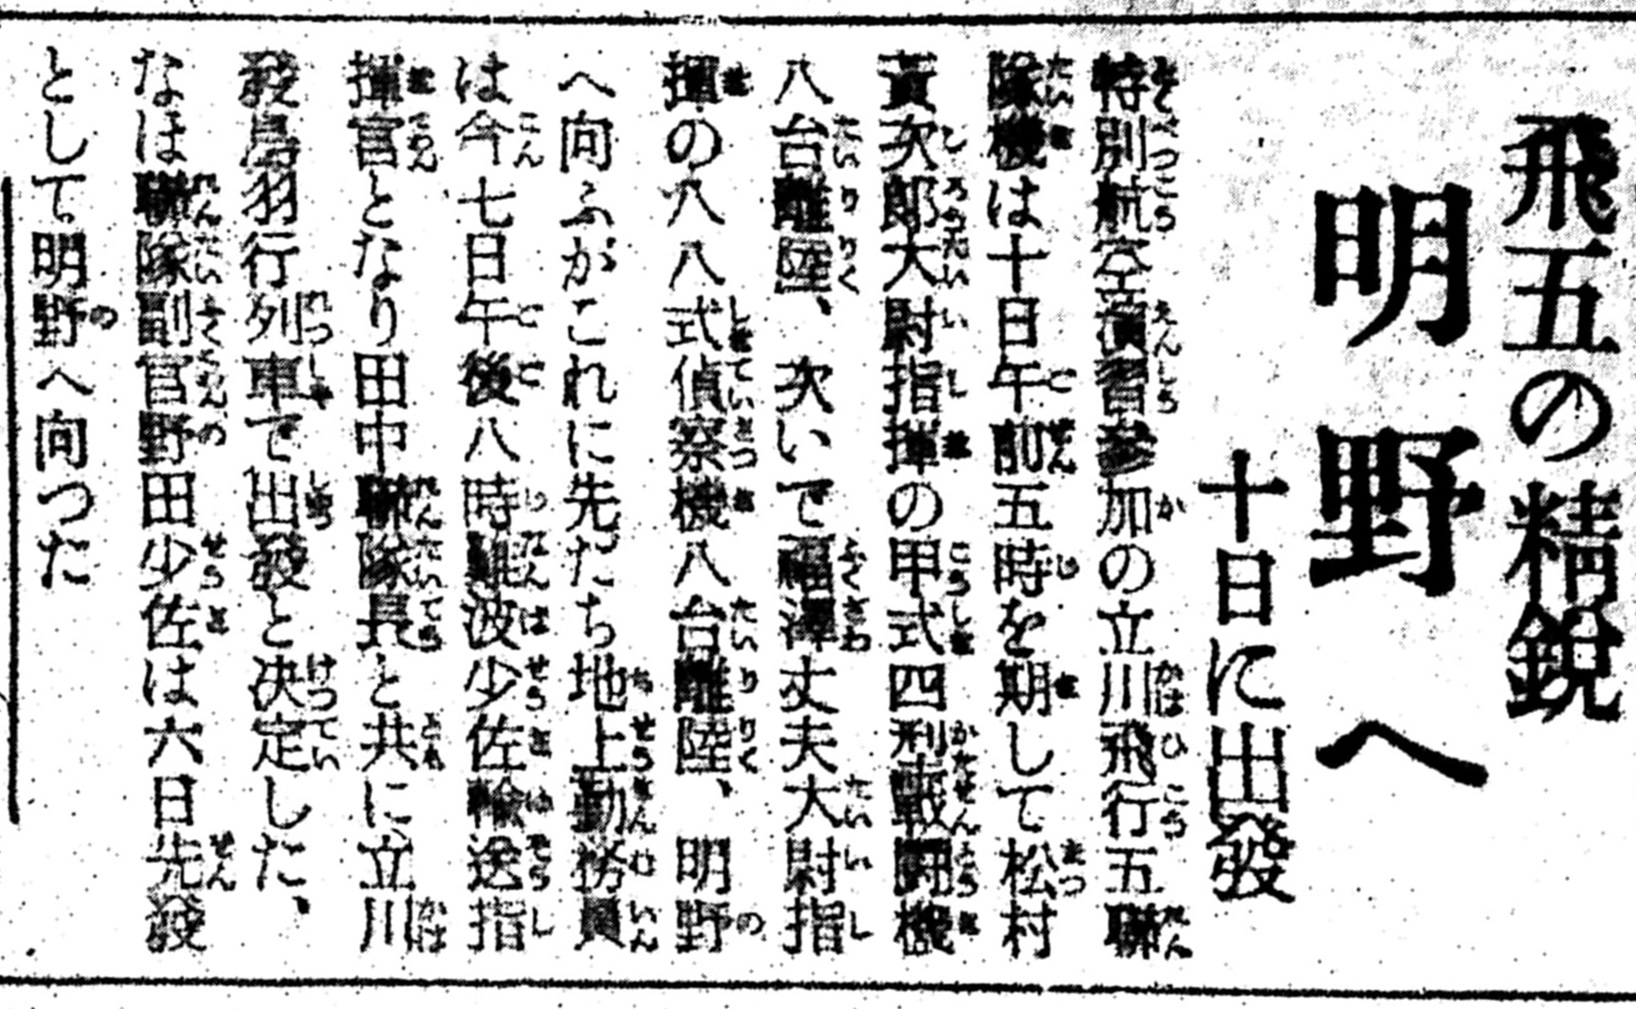 飛五の精鋭
明野へ
十日に出發
特別航空演習參加の立川飛行五聯
隊機は十日午前五時を期して松村
黃次郎大尉指揮の甲式四型戰鬪機
八台離陸、次いで福澤丈夫大尉指
揮の八八式偵察機八台離陸、明野
へ向ふがこれに先だち地上勤務員
は今七日午後八時難波少佐輸送指
揮官となり田中聯隊長と共に立川
發鳥羽行列車で出發と決定した、
なほ聯隊副官野田少佐は六日先發
として明野へ向つた